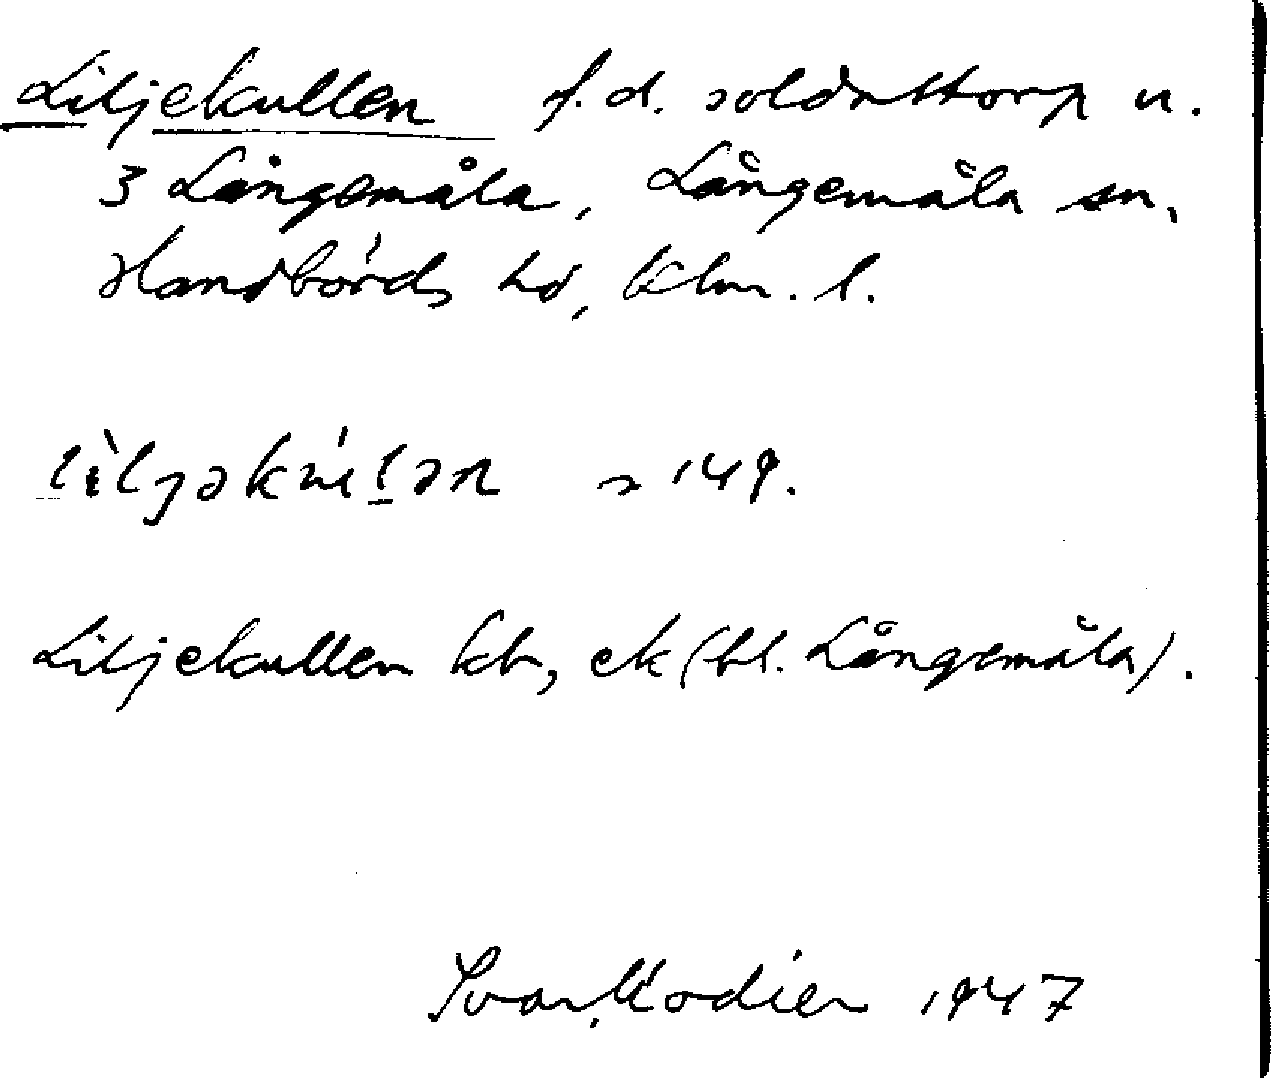 Liljekullen f.d. soldattorp u.
3 Långemåla, Långemåla sn,
Handbörds hd, Klm. l.
lìljəkúlən 149.
Liljekullen kb, ek (bl. Långemåla).
1947